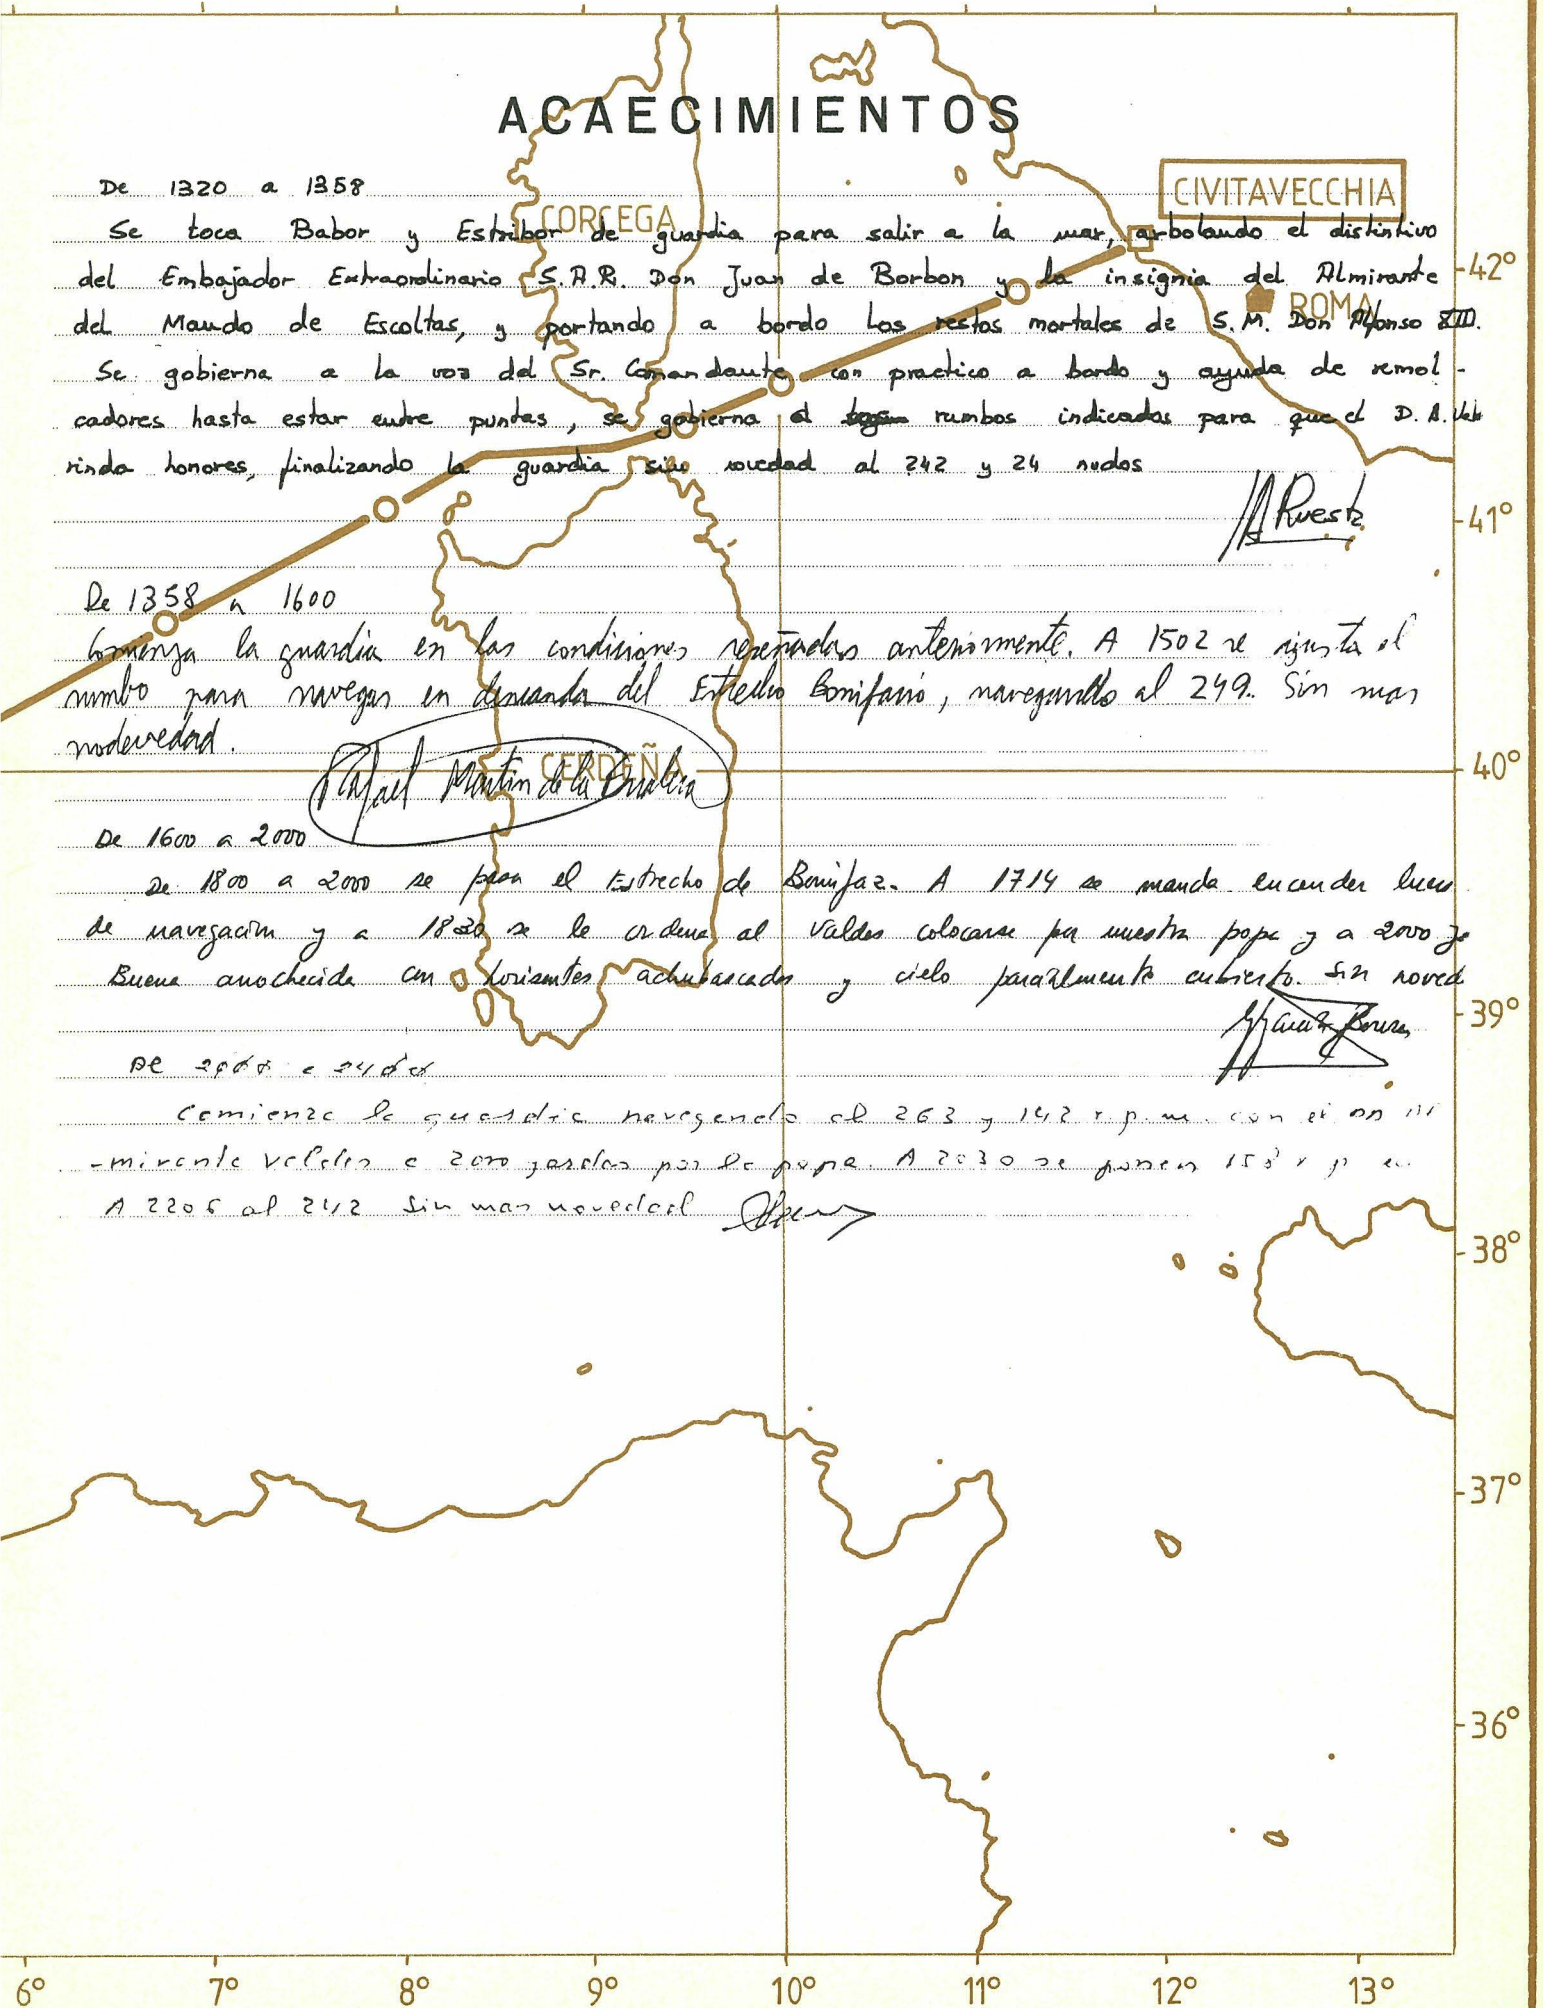 ACAECIMIENTOS
De 1320 a 1358
CIVITAVECCHIA
CORCEGA
Se toca Babor y Estribor de guardia para salir a la mar, arbolando el distintivo
42°
del Embajador Extraordinario S.A.R. Don Juan de Borbon y la insignia del Almirante
ROMA
del Mando de Escoltas, y portando a bordo los restos mortales de S.M. Don Alfonso XIII.
Se gobierna a la voz del Sr. Comandante con practico a bordo y ayuda de remol-
cadores hasta estar entre puntas, se gobierna a rumbos indicados para que el D. A.
rinda honores, finalizando la guardia sin novedad al 242 y 24 nudos
Ruesta
41°
De 1358 a 1600
Comienza la guardia en las condiciones reseñadas anteriormente. A 1502 se ajusta el
rumbo para navegar en demanda del Estrecho Bonifacio, navegando al 249. Sin mas
nodevedad.
CERDEÑA
40°
Rafael Martin de la
De 1600 a 2000
De 1800 a 2000 se pasa el Estrecho de Bonifaz. A 1714 se manda encender luces
de navegación y a 1830 se le ordena al Valdes colocarse por nuestra popa y a 2000 yo
Buena anochecida con horizontes achubascados y cielo parcialmente cubierto. Sin noved
39°
De 2000 a 2400
Comienza la guardia navegando al 263 y 142 r.p.m. con el
-mirante Valdes a 2000 yardas por la popa. A 2030 se ponen
A 2205 al 242 Sin mas novedad
38°
37°
36°
6° 7° 8° 9° 10° 11° 12° 13°